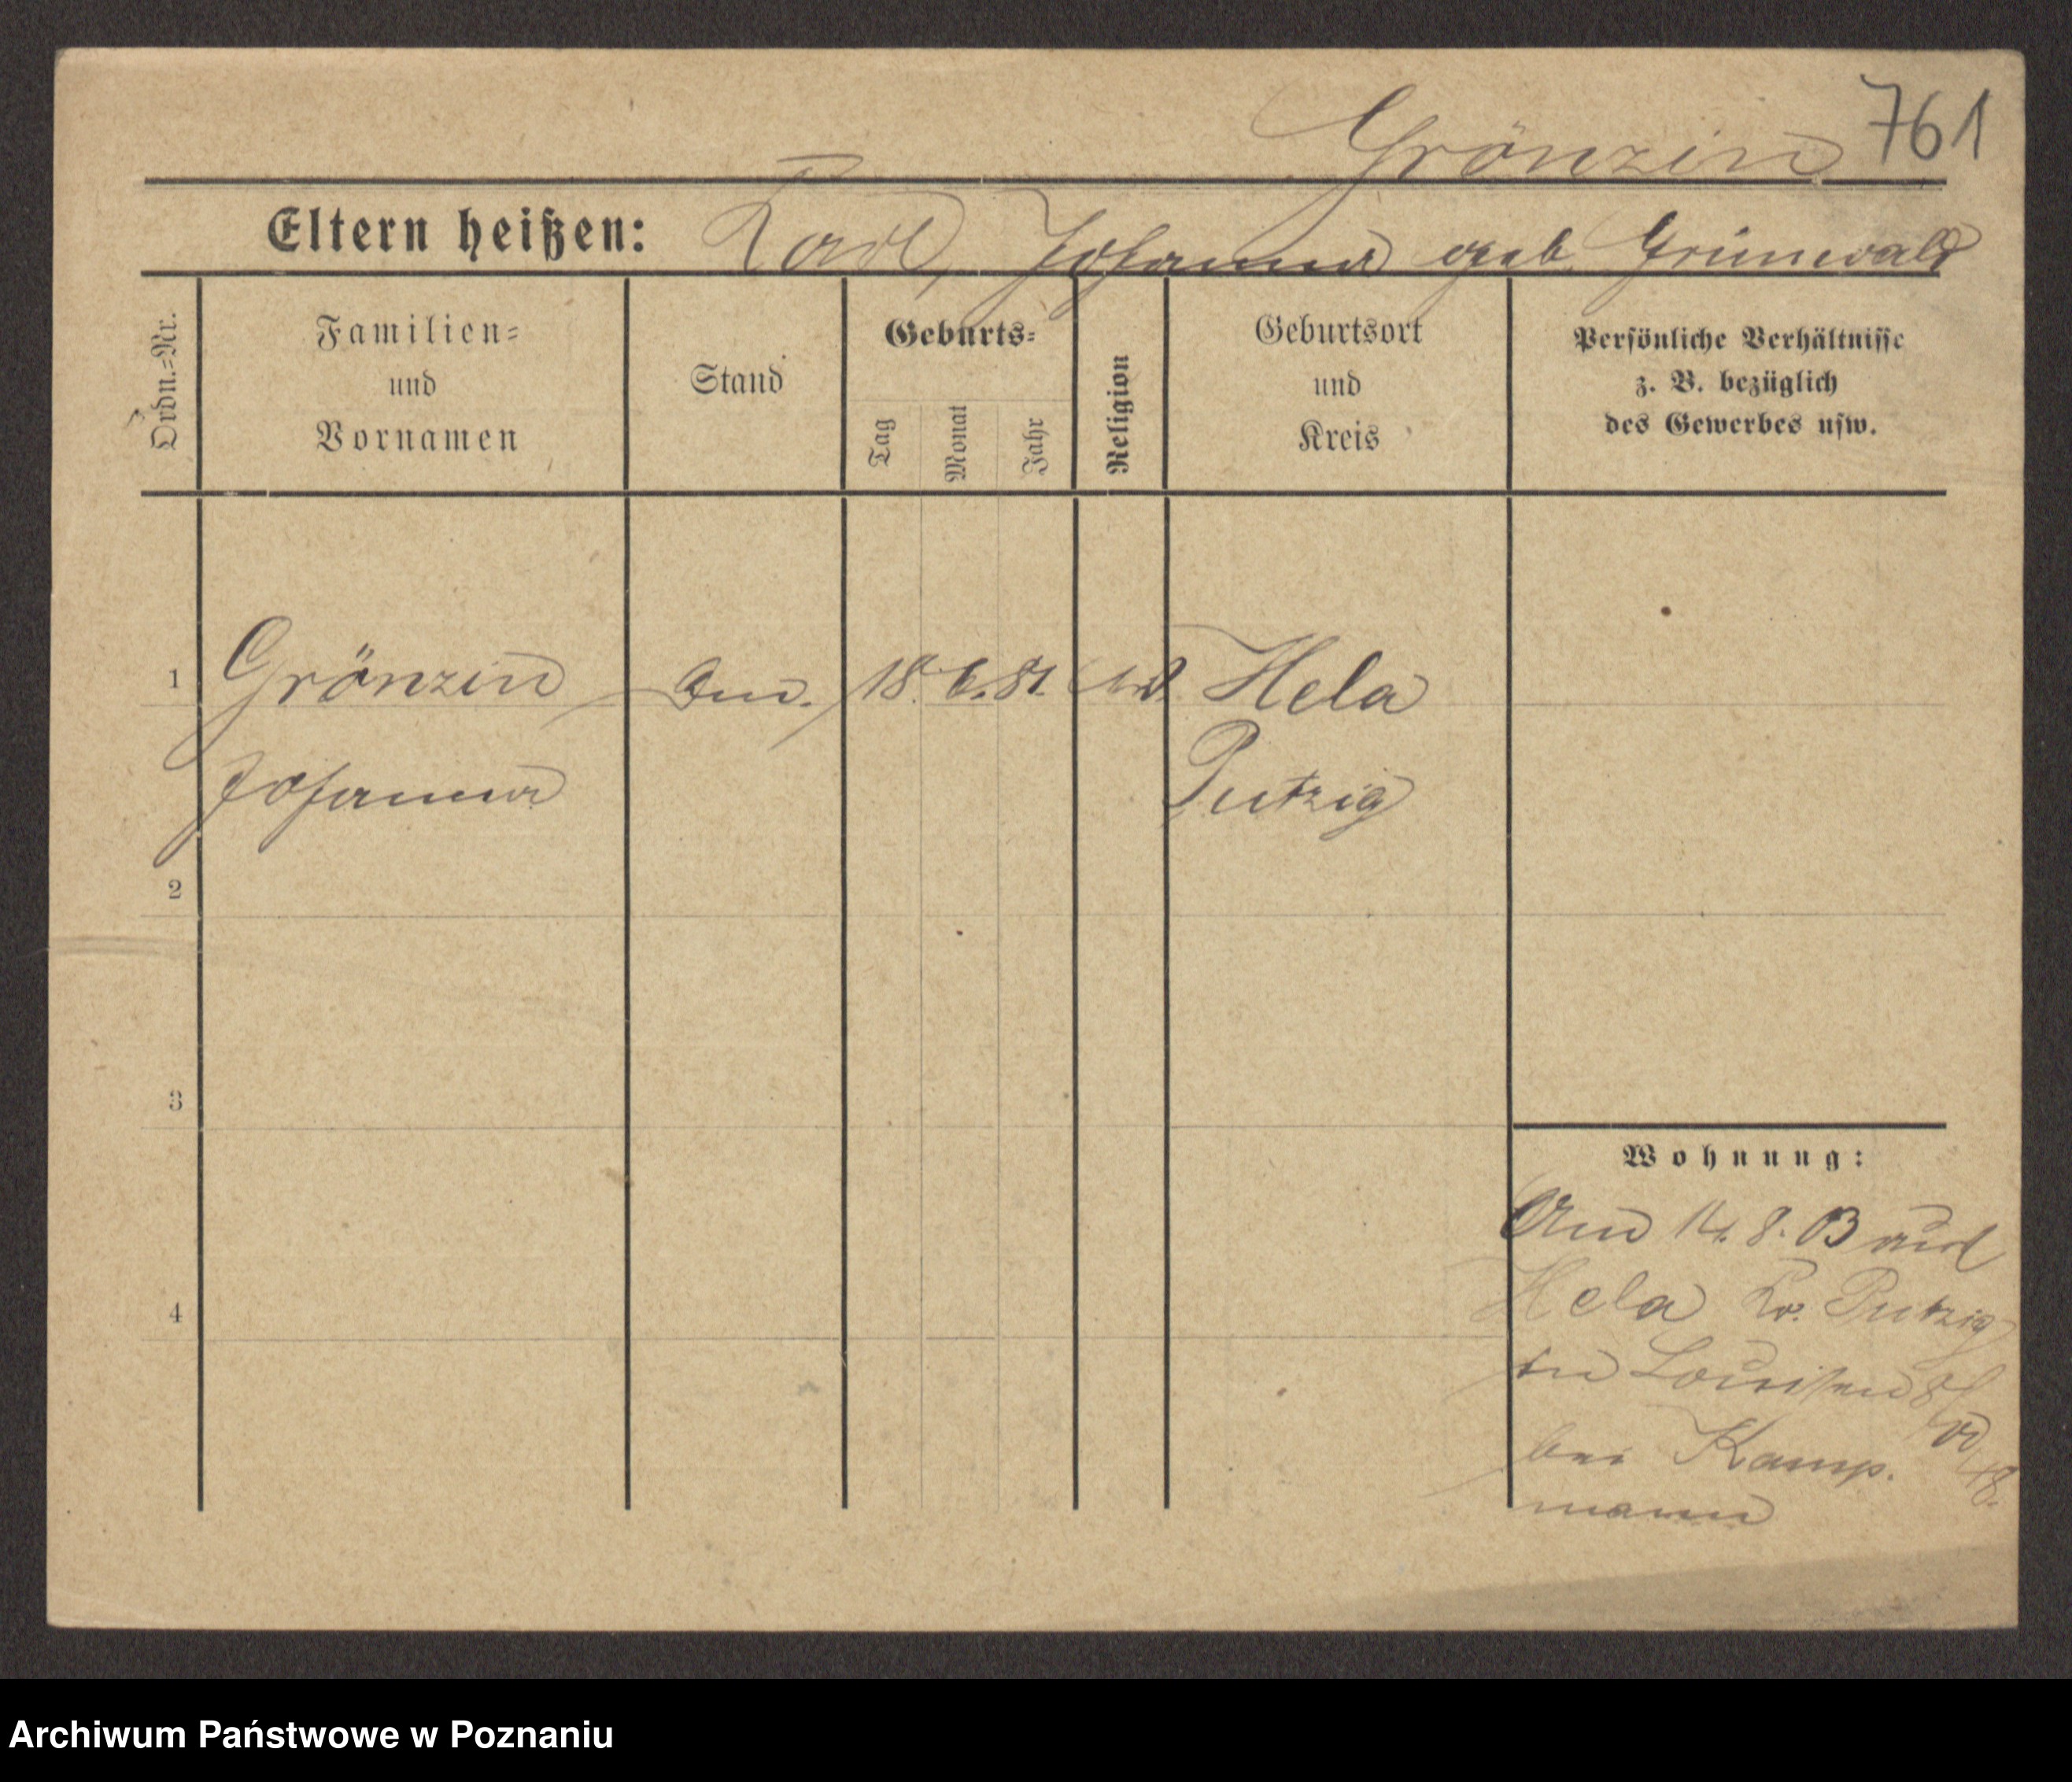 761
Grönzin
Eltern heißen: Karl, Johanna geb Grünwald
Ordn.=Nr.
Familien=
und
Vornamen
Stand
Geburts=
Tag
Monat
Jahr
Religion
Geburtsort
und
Kreis
Persönliche Verhältnisse
z. B. bezüglich
des Gewerbes usw.
1 Grönzin 18. 6. 81. Hela
Johanna Putzig
2
3
4
Wohnung:
Am 14. 8. 03 aus
Hela Kr. Putzig
in Louisen
bei Kamp.
mann
Archiwum Państwowe w Poznaniu